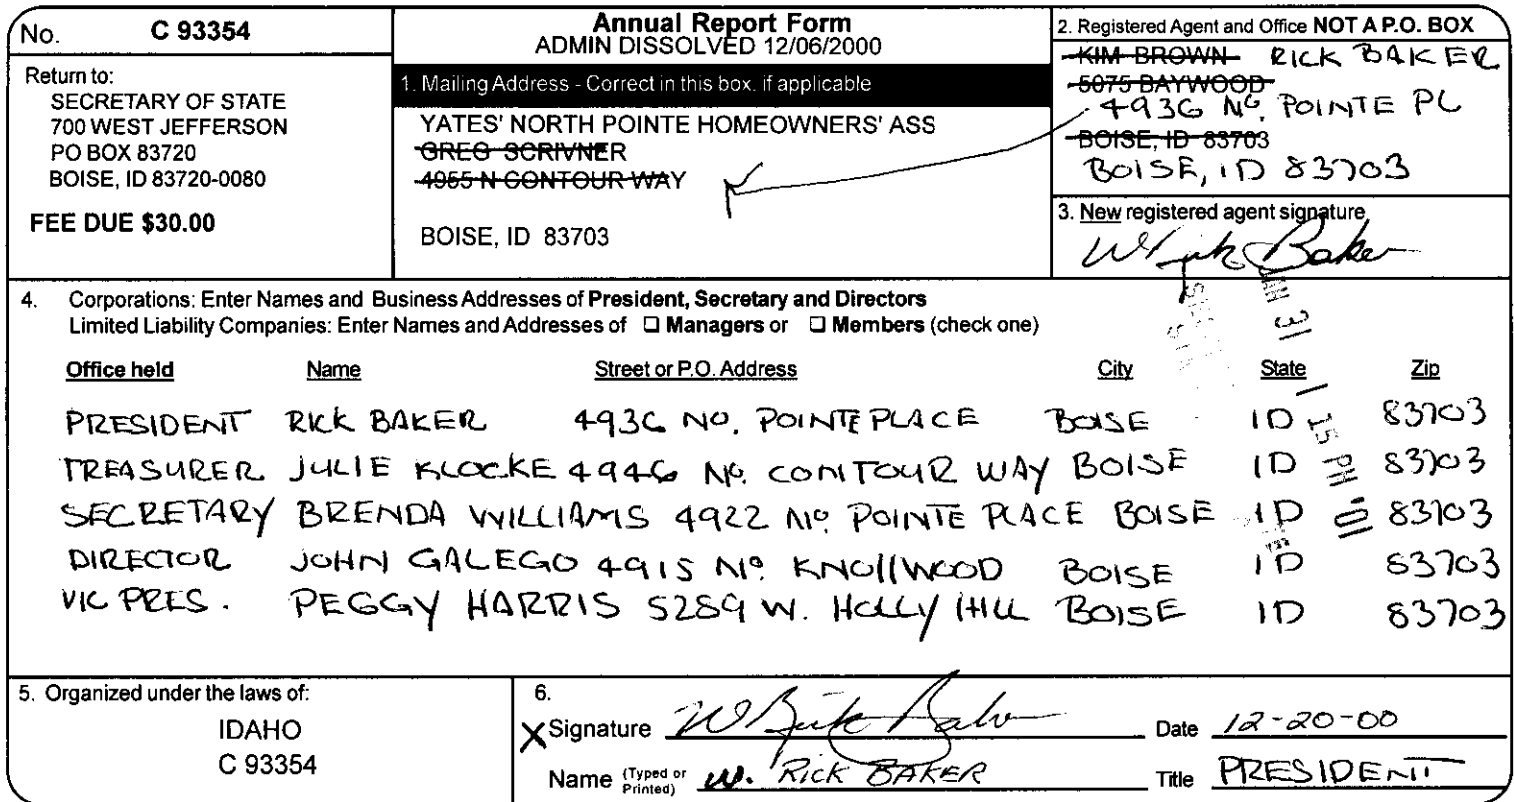 No. C 93354
Return to:
SECRETARY OF STATE
700 WEST JEFFERSON
PO BOX 83720
BOISE, ID 83720-0080
FEE DUE $30.00
Annual Report Form
ADMIN DISSOLVED 12/06/2000
1. Mailing Address - Correct in this box, if applicable
YATES' NORTH POINTE HOMEOWNERS' ASS
GREG SCRIVNER
4955 N CONTOUR WAY
BOISE, ID 83703
2. Registered Agent and Office NOT A P.O. BOX
KIM BROWN RICK BAKER
5075 BAYWOOD
4936 No. POINTE PL
BOISE, ID 83703
BOISE, ID 83703
3. New registered agent signature
W Rick Baker
4. Corporations: Enter Names and Business Addresses of President, Secretary and Directors
Limited Liability Companies: Enter Names and Addresses of ☐ Managers or ☐ Members (check one)
Office held Name Street or P.O. Address City State Zip
PRESIDENT RICK BAKER 4936 NO. POINTE PLACE BOISE ID 83703
TREASURER JULIE KLOCKE 4946 No. CONTOUR WAY BOISE ID 83703
SECRETARY BRENDA WILLIAMS 4922 No. POINTE PLACE BOISE ID 83703
DIRECTOR JOHN GALEGO 4915 No. KNOllWOOD BOISE ID 83703
VIC PRES. PEGGY HARRIS 5289 W. HOLLY HILL BOISE ID 83703
31 1 15 PM '01
5. Organized under the laws of:
IDAHO
C 93354
6.
X Signature W Rick Baker Date 12-20-00
Name (Typed or Printed) W. RICK BAKER Title PRESIDENT